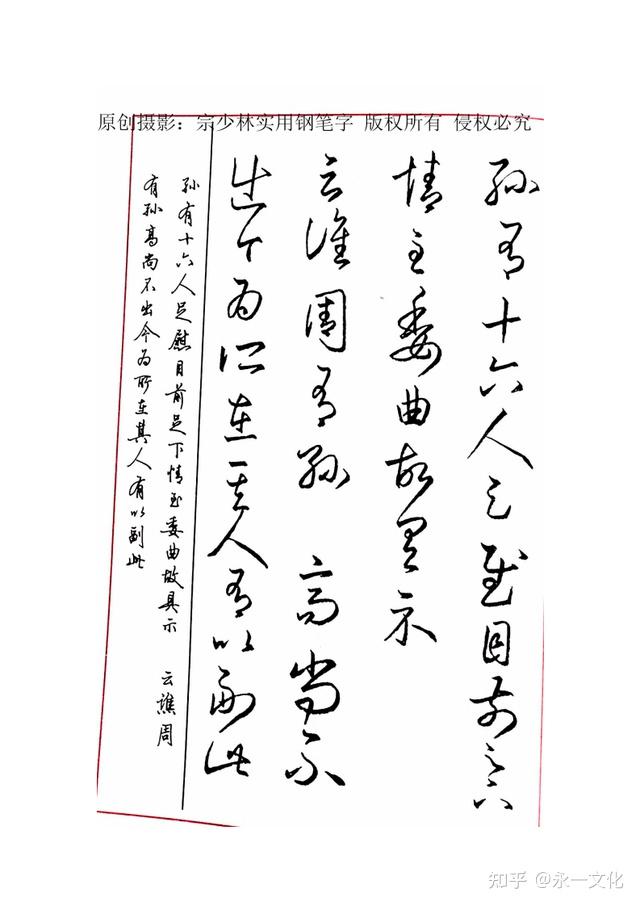 原创摄影：宗少林实用钢笔字 版权所有 侵权必究
孙有十六人足慰目前足下
情至委曲故具示
云谯周有孙 高尚不
出今为所在其人有以副此
孙有十六人足慰目前足下情至委曲故具示 云谯周
有孙高尚不出今为所在其人有以副此
知乎 @永一文化